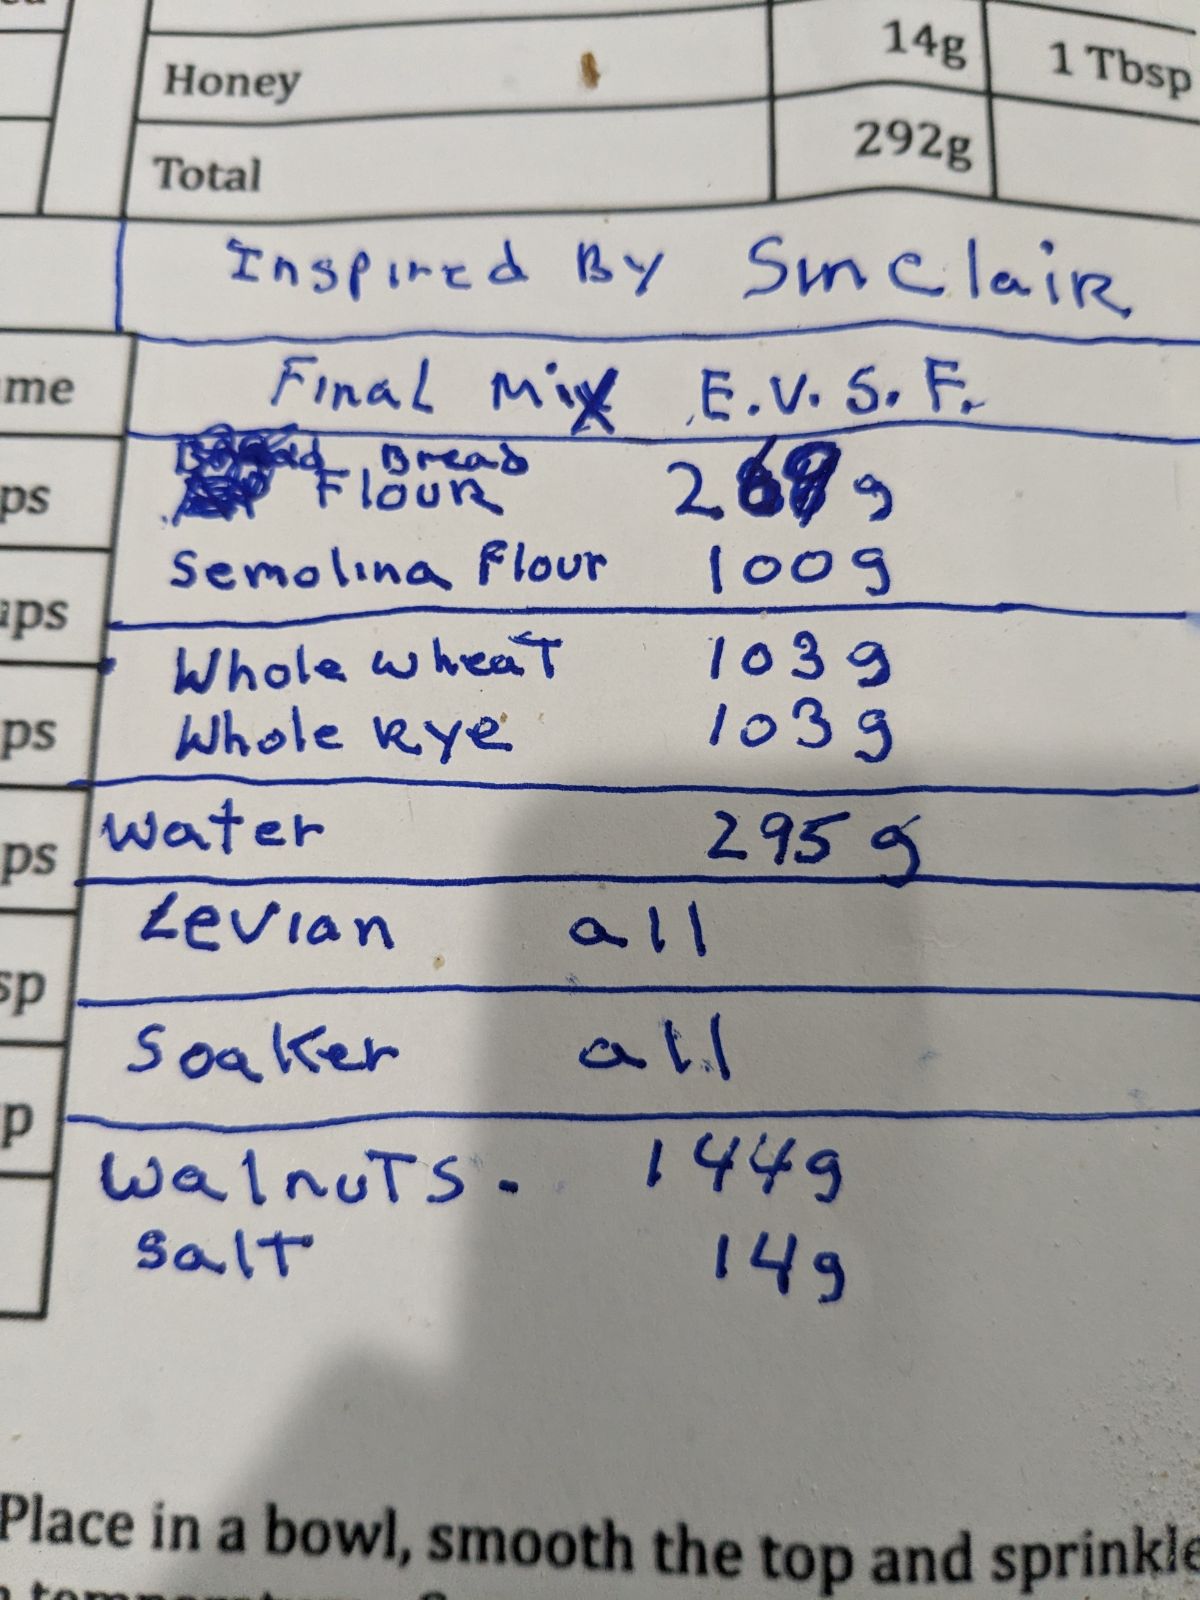 Honey 14g 1 Tbsp
Total 292g
Inspired By Sinclair
me Final Mix E.V.S.F.
Bread
ps Flour g
Semolina Flour 100g
ups
Whole wheat 103g
ps Whole Rye 103g
Water 295g
ps
Levian all
sp
Soaker all
p
Walnuts - 144g
Salt 14g
Place in a bowl, smooth the top and sprinkle